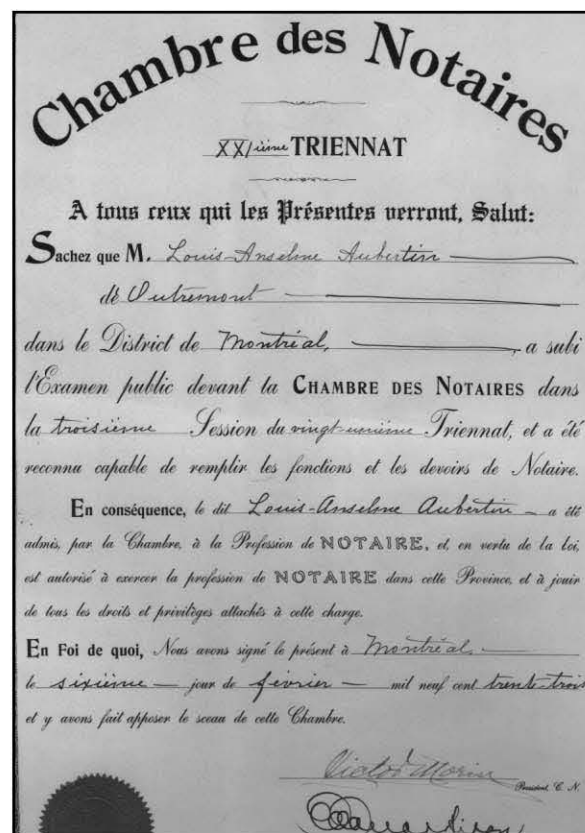 Chambre des Notaires
XXIième TRIENNAT
A tous ceux qui les Présentes verront, Salut:
Sachez que M. Louis-Anselme Aubertin
de Outremont
dans le District de Montréal, a subi
l'Examen public devant la CHAMBRE DES NOTAIRES dans
la troisième Session du vingt-unième Triennat, et a été
reconnu capable de remplir les fonctions et les devoirs de Notaire.
En conséquence, le dit Louis-Anselme Aubertin a été
admis, par la Chambre, à la Profession de NOTAIRE, et, en vertu de la loi,
est autorisé à exercer la profession de NOTAIRE dans cette Province, et à jouir
de tous les droits et privilèges attachés à cette charge.
En Foi de quoi, Nous avons signé le présent à Montréal,
le sixième jour de février mil neuf cent trente-trois
et y avons fait apposer le sceau de cette Chambre.
Victor Morin
Président, C. N.